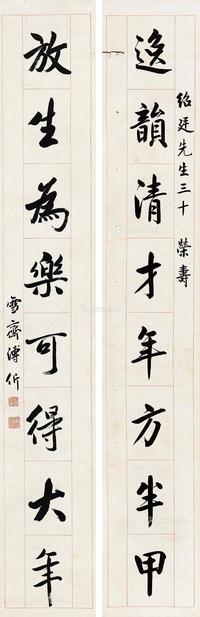 逸韻清才年方半甲
紹廷先生三十榮壽
放生為樂可得大年
雪齋溥伒